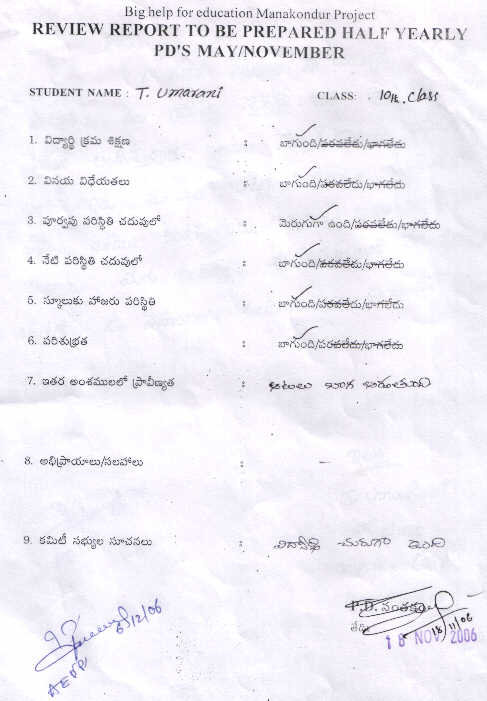 Big help for education Manakondur Project
REVIEW REPORT TO BE PREPARED HALF YEARLY
PD'S MAY/NOVEMBER
STUDENT NAME : T. Umarani CLASS: 10th. Class
1. విద్యార్థి క్రమ శిక్షణ : బాగుంది/పరవలేదు/భాగలేదు
2. వినయ విధేయతలు : బాగుంది/పరవలేదు/భాగలేదు
3. పూర్వపు పరిస్థితి చదువులో : మెరుగుగా ఉంది/పరవలేదు/భాగలేదు
4. నేటి పరిస్థితి చదువులో : బాగుంది/పరవలేదు/భాగలేదు
5. స్కూలుకు హాజరు పరిస్థితి : బాగుంది/పరవలేదు/భాగలేదు
6. పరిశుభ్రత : బాగుంది/పరవలేదు/భాగలేదు
7. ఇతర అంశములలో ప్రావీణ్యత : ఆటలు బాగ ఆడుతుంది
8. అభిప్రాయాలు/సలహాలు : -
9. కమిటీ సభ్యుల సూచనలు : విద్యార్థి చురుగా ఉంది
P.D. సంతకం
తేది
18/11/06
18 NOV 2006
6/12/06